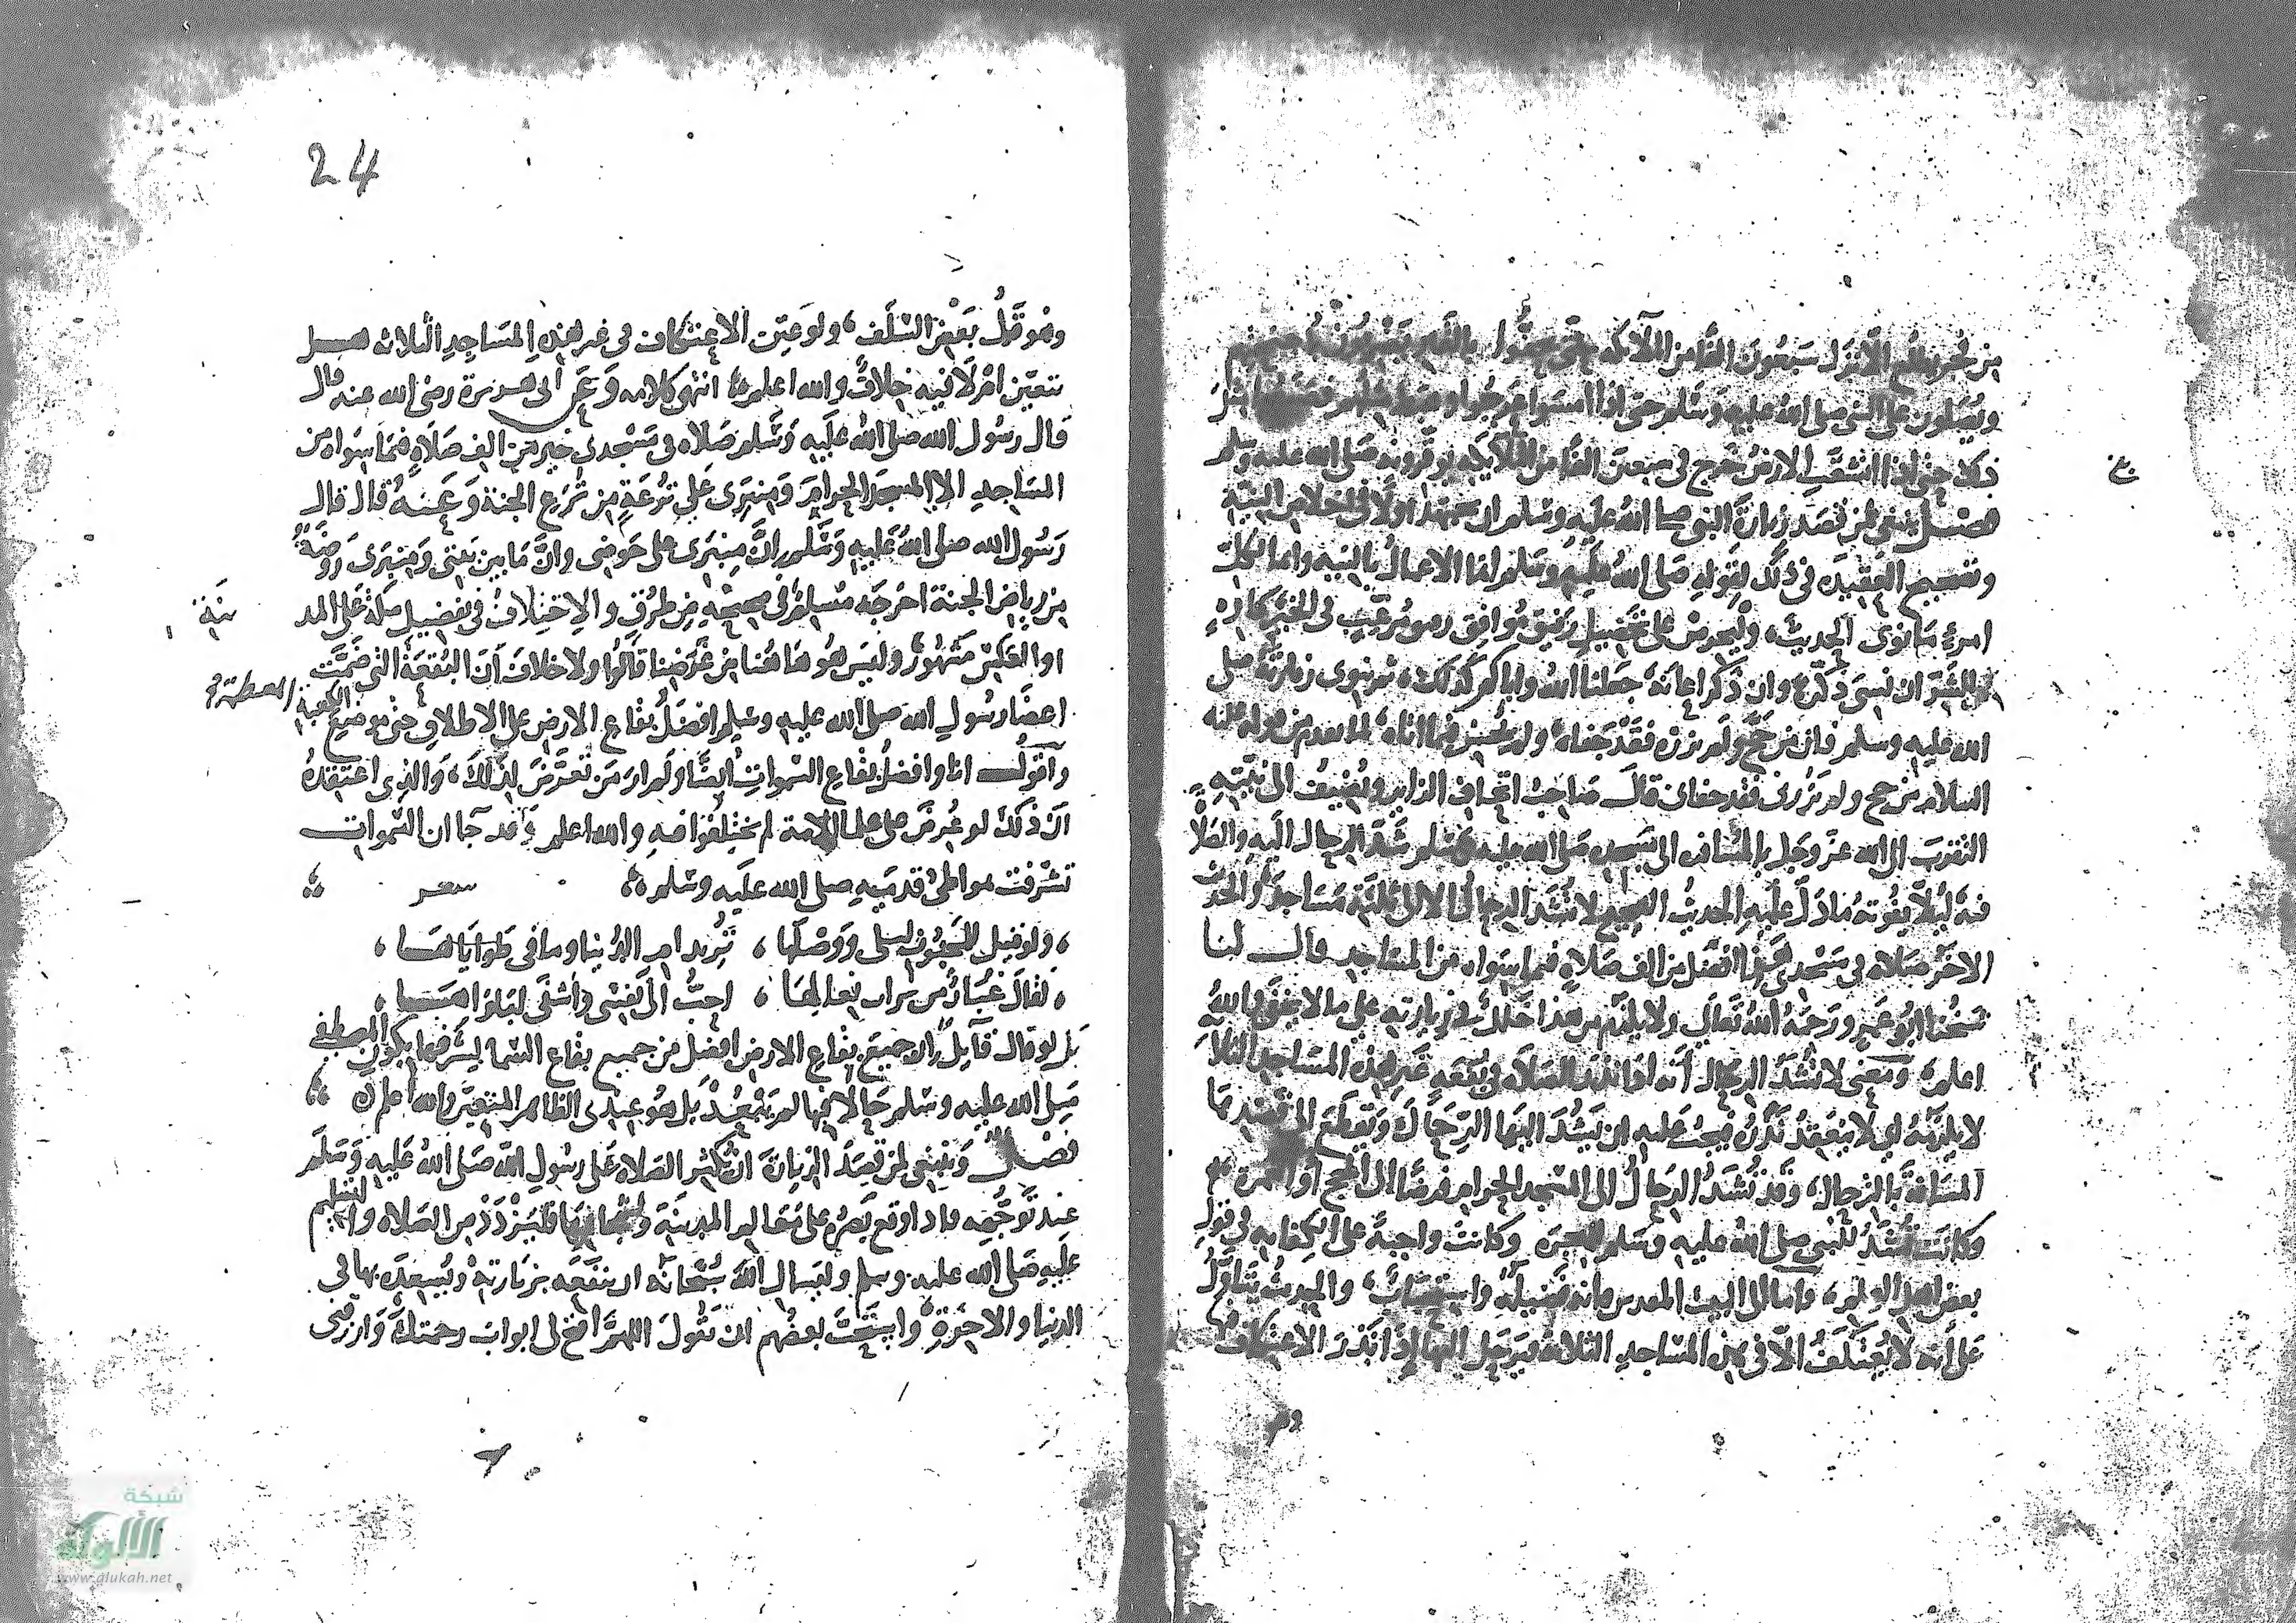 من فجر يطلع الا نزل سبعون الفا من الملائكة حتى يحفوا بالقبر يضربون باجنحتهم
ويصلون على النبي صلى الله عليه وسلم حتى اذا امسوا عرجوا وهبط مثلهم فصنعوا مثل
ذلك حتى اذا انشقت الارض خرج في سبعين الفا من الملائكة يوقرونه صلى الله عليه وسلم
فصل ينبغي لمن قصد زيارة النبي صلى الله عليه وسلم ان يجتهد اولا في اخلاص النية
وتصحيح العقيدة في ذلك لقوله صلى الله عليه وسلم انما الاعمال بالنية وانما لكل
امرئ ما نوى الحديث، وليحرص على تحصيل رفيق موافق مرغب في الخير كاره
للشر ان نسي ذكره وان ذكر اعانه جعلنا الله واياكم كذلك، ثم ينوي زيارته صلى
الله عليه وسلم فان من حج ولم يزره فقد جفاه ولم يحسن فيما اتاه لما تقدم من قوله عليه
السلام من حج ولم يزرني فقد جفاني قال صاحب اتحاف الزاير ويضيف الى نيته
التقرب الى الله عز وجل بالمسافة الى مسجده صلى الله عليه وسلم شد الرحال اليه والصلاة
فيه ليلا يفوته ما دل عليه الحديث الصحيح لا تشد الرحال الا الى ثلثة مساجد والحديث
الاخر صلاة في مسجدي هذا افضل من الف صلاة فيما سواه من المساجد قال لنا
شيخنا ابو عمرو رحمه الله تعالى ولا يلزم من هذا خلل في زيارته على ما لا يخفى والله
اعلم ومعنى لا تشد الرحال انه اذا نذر الصلاة في بقعة غير هذه المساجد الثلاثة
لا يلزمه اي لا ينعقد نذره فيجب عليه ان يشد اليها الرحال ويقطع الى قصدها
المسافة بالترحال، وقد تشد الرحال الى المسجد الحرام فرضا الى الحج او العمرة
وكانت تشد للنبي صلى الله عليه وسلم للهجرة وكانت واجبة على الكفاية في قول
بعض اهل العلم، واما الى البيت المقدس فانه فضيلة واستحباب، والحديث يتاول
على انه لا يعتكف الا في هذه المساجد الثلاثة فيرحل اليها اذا نذر الاعتكاف فيها
24
وهو قول بعض السلف، ولو عين الاعتكاف في غير هذه المساجد الثلاثه هل
يتعين ام لا فيه خلاف والله اعلم انتهى كلامه وعن ابي هريرة رضي الله عنه قال
قال رسول الله صلى الله عليه وسلم صلاة في مسجدي خير من الف صلاة فيما سواه من
المساجد الا المسجد الحرام ومنبري على ترعة من ترع الجنة وعنه قال قال
رسول الله صلى الله عليه وسلم ان منبري على حوضي وان ما بين بيتي ومنبري روضة
من رياض الجنة اخرجه مسلم في صحيحه من طرق والاختلاف في تفضيل مكة على المد
ينة
او العكس مشهور وليس هو هاهنا من غرضنا قالوا ولا خلاف ان البقعة التي ضمت
اعضا رسول الله صلى الله عليه وسلم افضل بقاع الارض على الاطلاق حتى موضع
الكعبة المعظمة
واقول انا وافضل بقاع السموات ايضا ولم ار من تعرض لذلك، والذي اعتقده
ان ذلك لو عرض على علما الامة لم يختلفوا فيه والله اعلم وقد جا ان السموات
تشرفت بمواطئ قدميه صلى الله عليه وسلم شعر
، ولو قيل للمجنون ليلى ووصلها ، تريد ام الدنيا وما في طواياها ،
، لقال غبار من تراب نعالها ، احب الى نفسي واشفى لبلواها ،
بل لو قال قايل ان جميع بقاع الارض افضل من جميع بقاع السما لشرفها بكون المصطفى
صلى الله عليه وسلم حالا بها لم يبعد بل هو عندي الظاهر المتعين والله اعلم
فصل وينبغي لمن قصد الزيارة ان يكثر الصلاة على رسول الله صلى الله عليه وسلم
عند توجهه فاذا وقع بصره على معالم المدينة فليزدد من الصلاة والتسليم
عليه صلى الله عليه وسلم وليسال الله سبحانه ان ينفعه بزيارته ويسعده بها في
الدنيا والاخرة واستحب بعضهم ان يقول اللهم افتح لي ابواب رحمتك وارزقني
شبكة
الألوكة
www.alukah.net